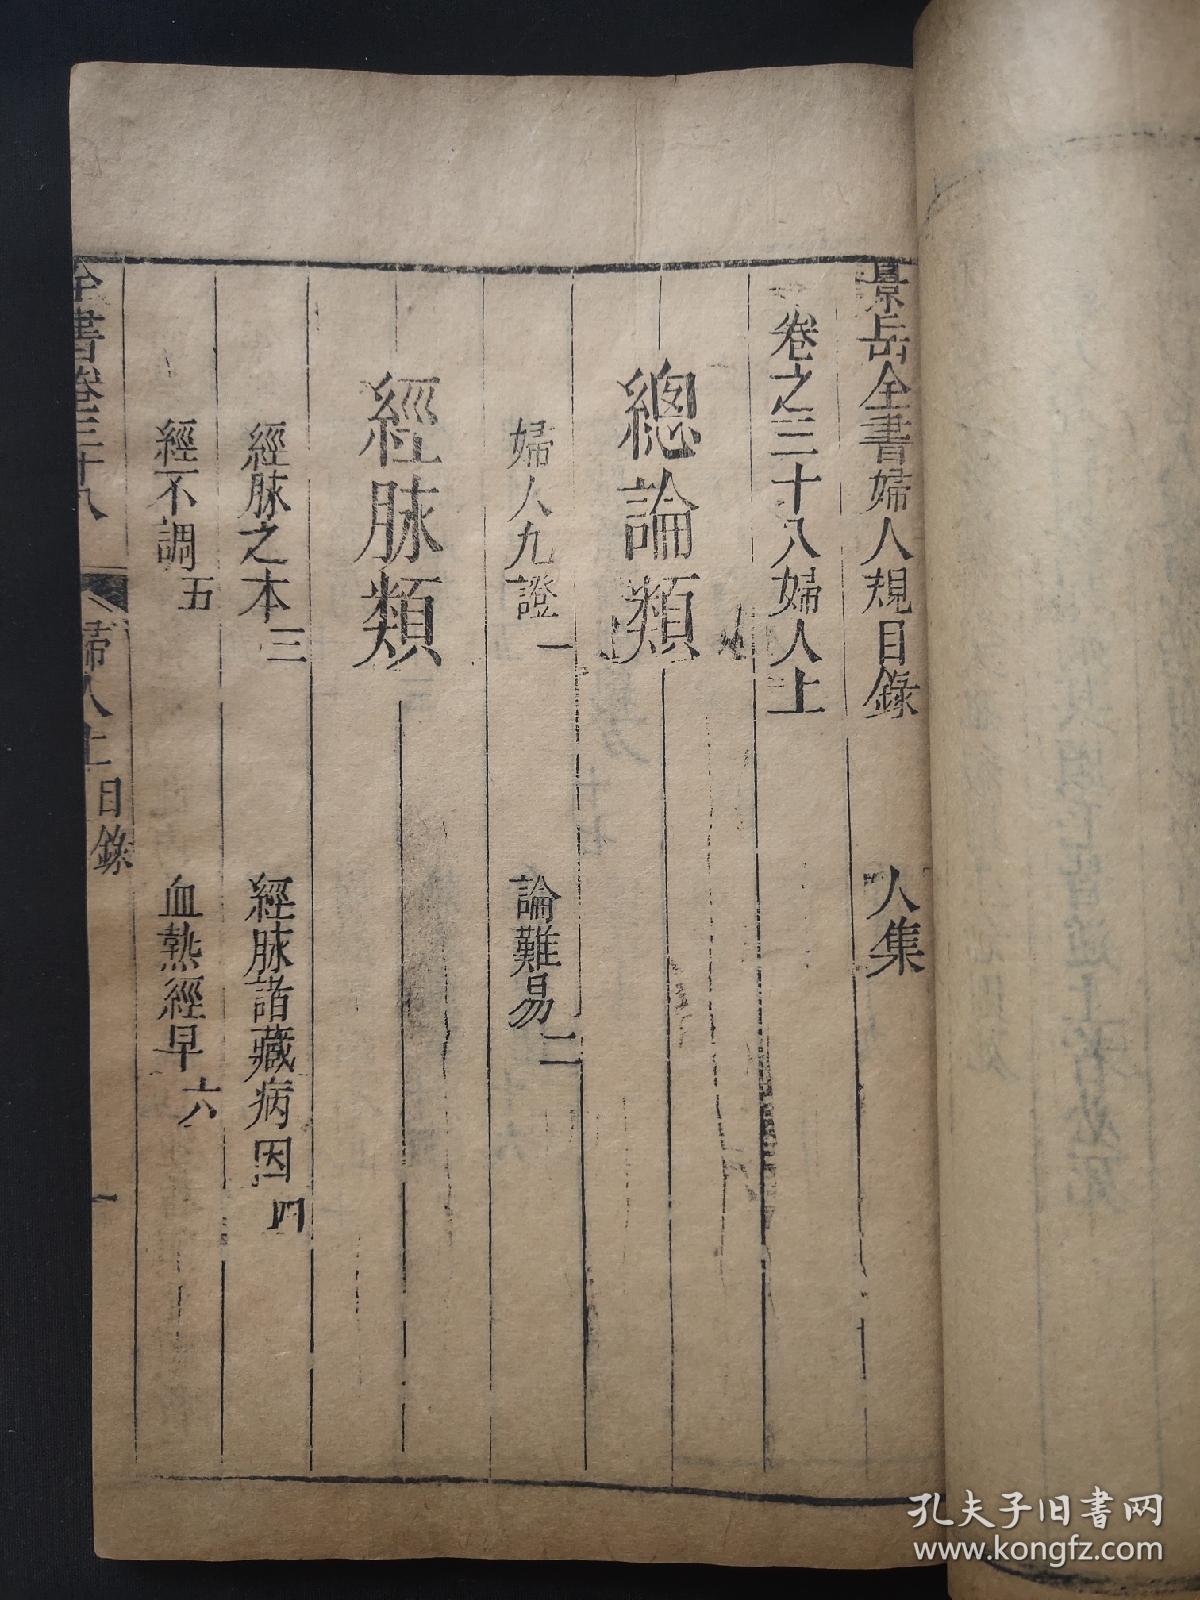 景岳全書婦人規目錄　人集
卷之三十八婦人上
總論類
婦人九證一　論難易二
經脉類
經脉之本三　經脉諸藏病因四
經不調五　血熱經早六
全書卷三十八　婦人上目錄　一
孔夫子旧书网
www.kongfz.com